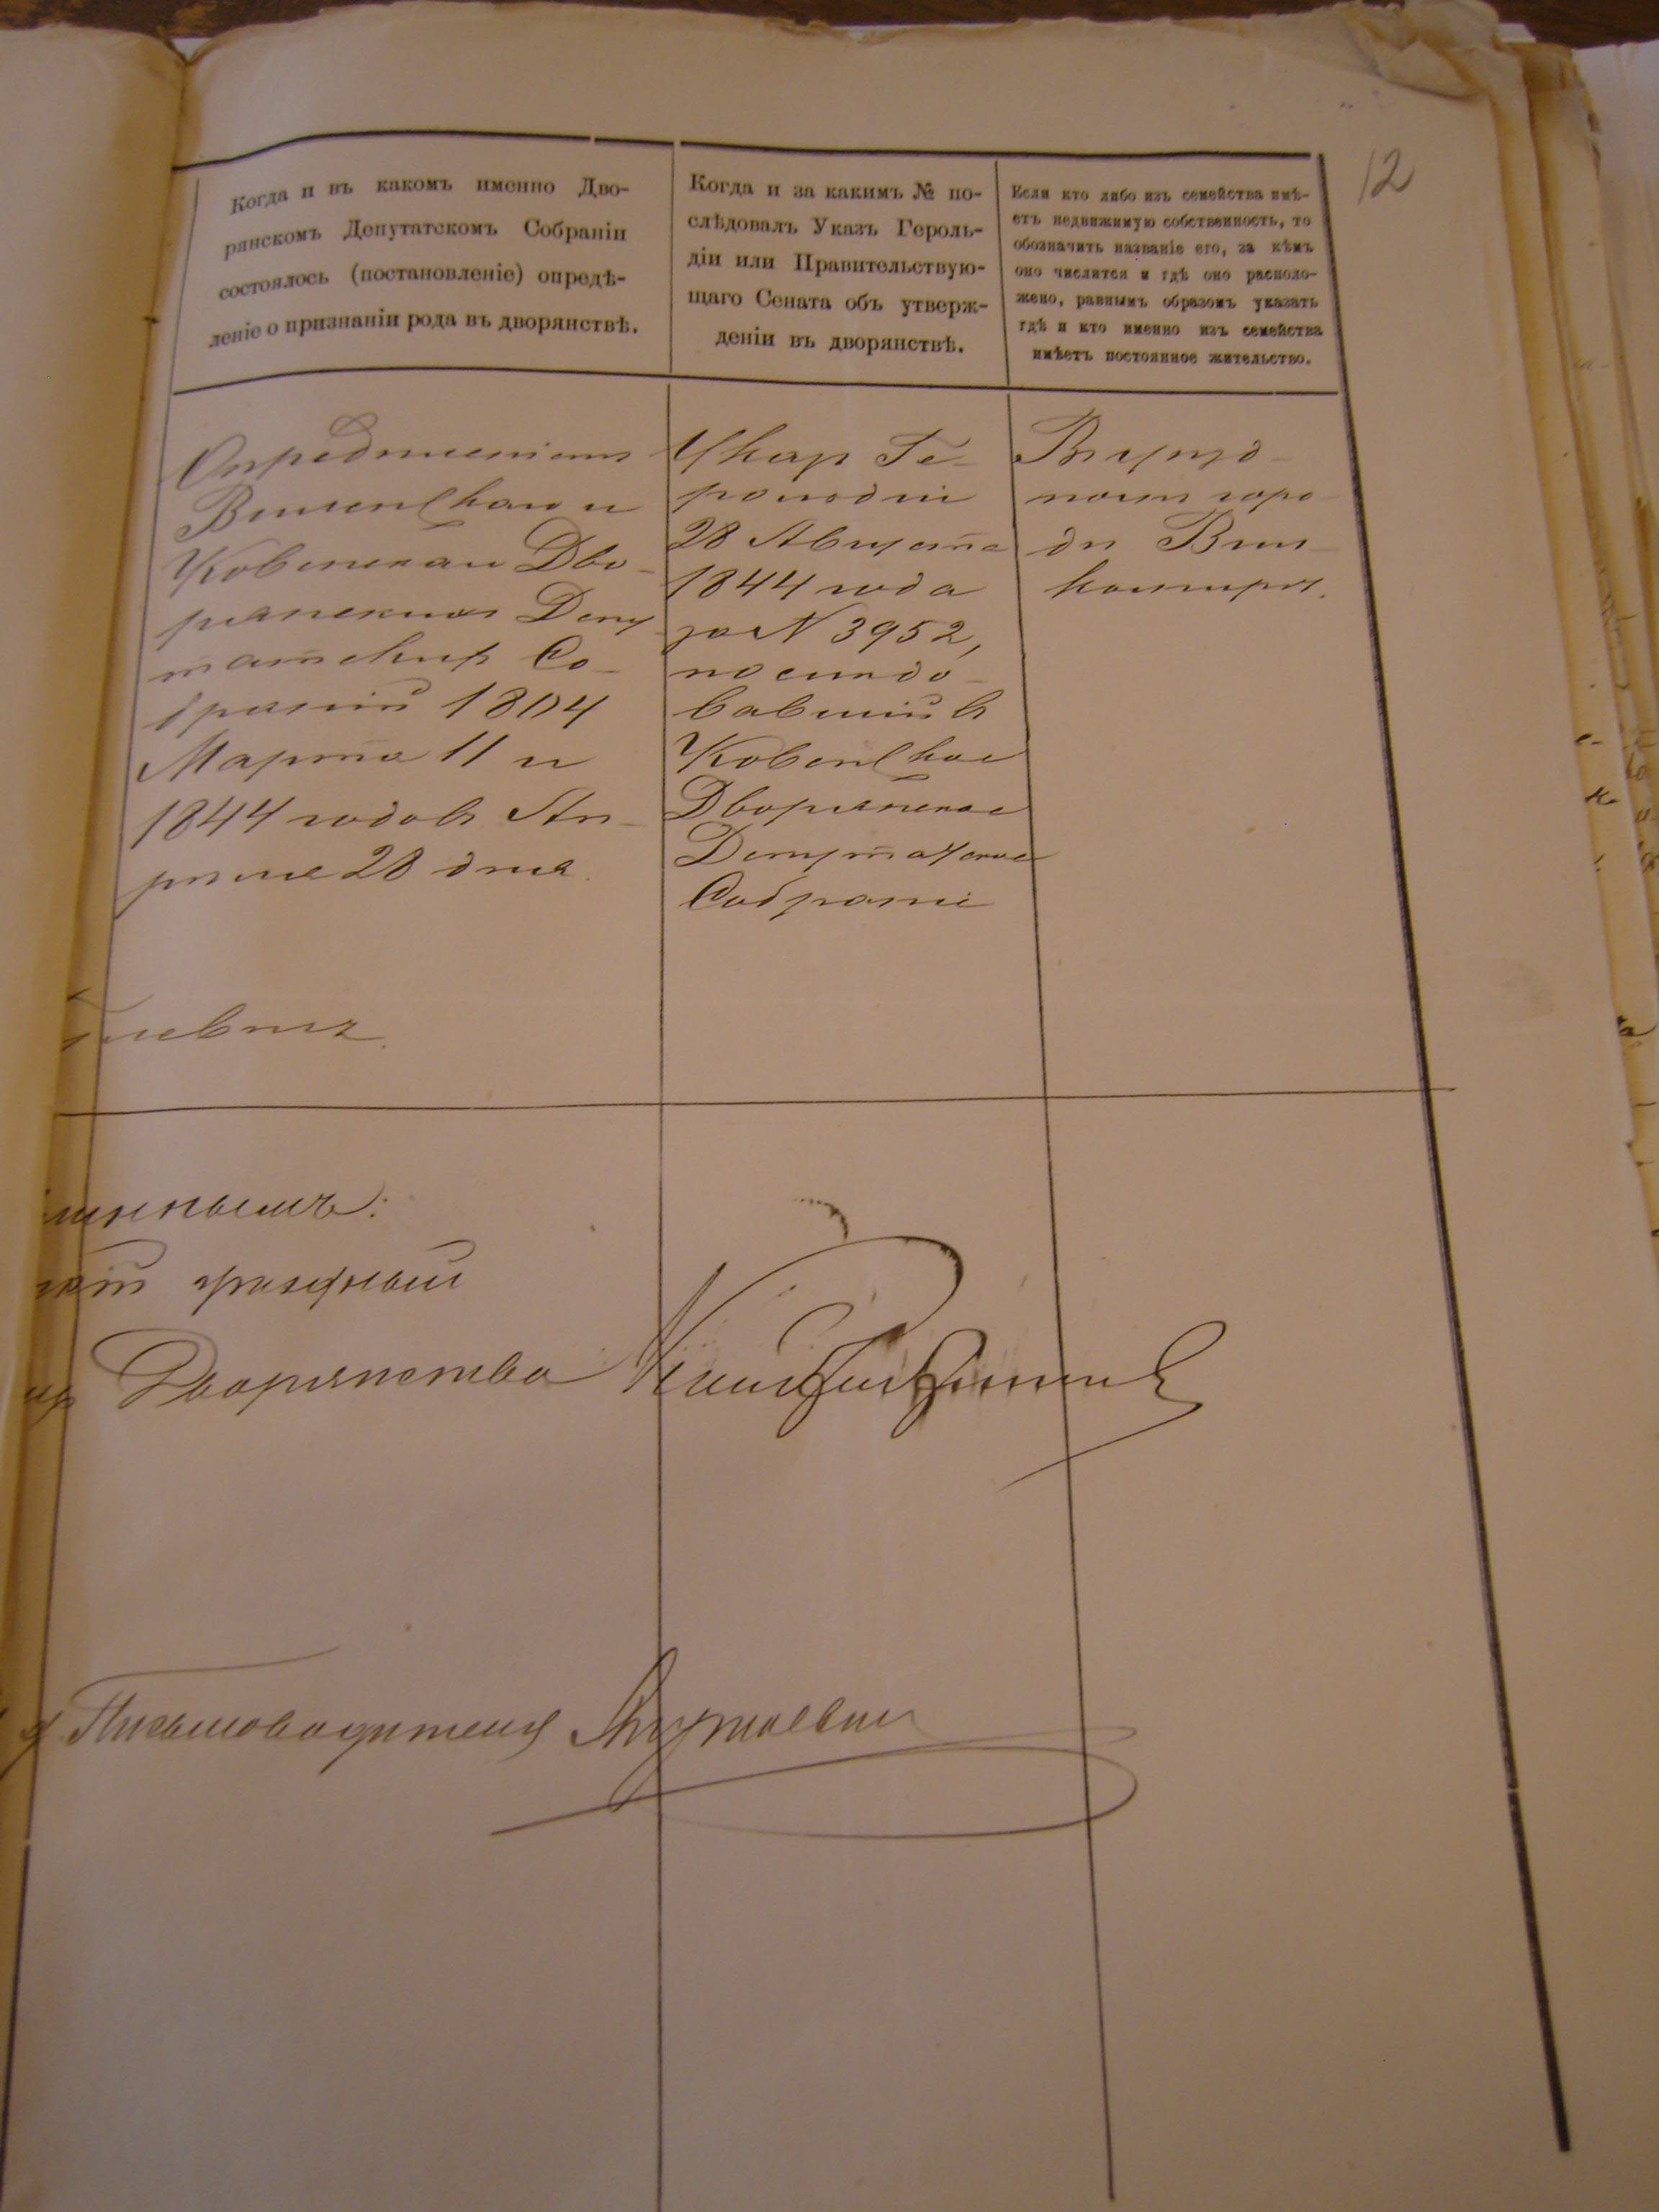 12
Когда и въ какомъ именно Дво-
рянскомъ Депутатскомъ Собраніи
состоялось (постановленіе) опредѣ-
леніе о признаніи рода въ дворянствѣ.
Когда и за какимъ № по-
слѣдовалъ Указъ Героль-
діи или Правительствую-
щаго Сената объ утверж-
деніи въ дворянствѣ.
Если кто либо изъ семейства имѣ-
етъ недвижимую собственность, то
обозначить названіе его, за кѣмъ
оно числится и гдѣ оно располо-
жено, равнымъ образомъ указать
гдѣ и кто именно изъ семейства
имѣетъ постоянное жительство.
Опредѣленіемъ
Виленскаго и
Ковенскаго Дво-
рянскихъ Депу-
татскихъ Со-
браній 1804
Марта 11 и
1844 годовъ Ап-
рѣля 28 дня.
Указъ Ге-
рольдіи
28 Августа
1844 года
за № 3952,
послѣдо-
вавшій въ
Ковенское
Дворянское
Депутатское
Собраніе
Въ уѣзд-
номъ горо-
дѣ Вил-
комирѣ.
Дворянства
Письмоводителя